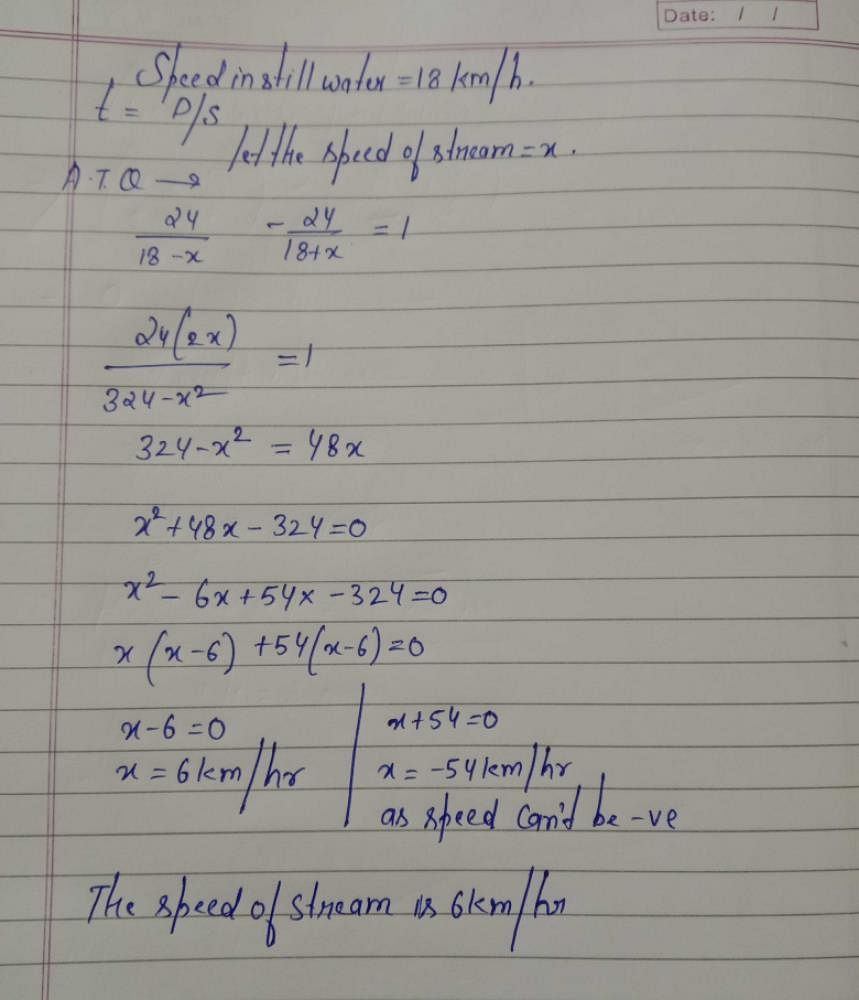 Date: / /
Speed in still water = 18 km/h.
t = D/S
let the speed of stream = x.
A.T.Q →
24/18-x - 24/18+x = 1
24(2x)/324-x² = 1
324-x² = 48x
x²+48x-324=0
x²-6x+54x-324=0
x(x-6)+54(x-6)=0
x-6=0 | x+54=0
x=6km/hr | x=-54km/hr
as speed can't be -ve
The speed of stream is 6km/hr